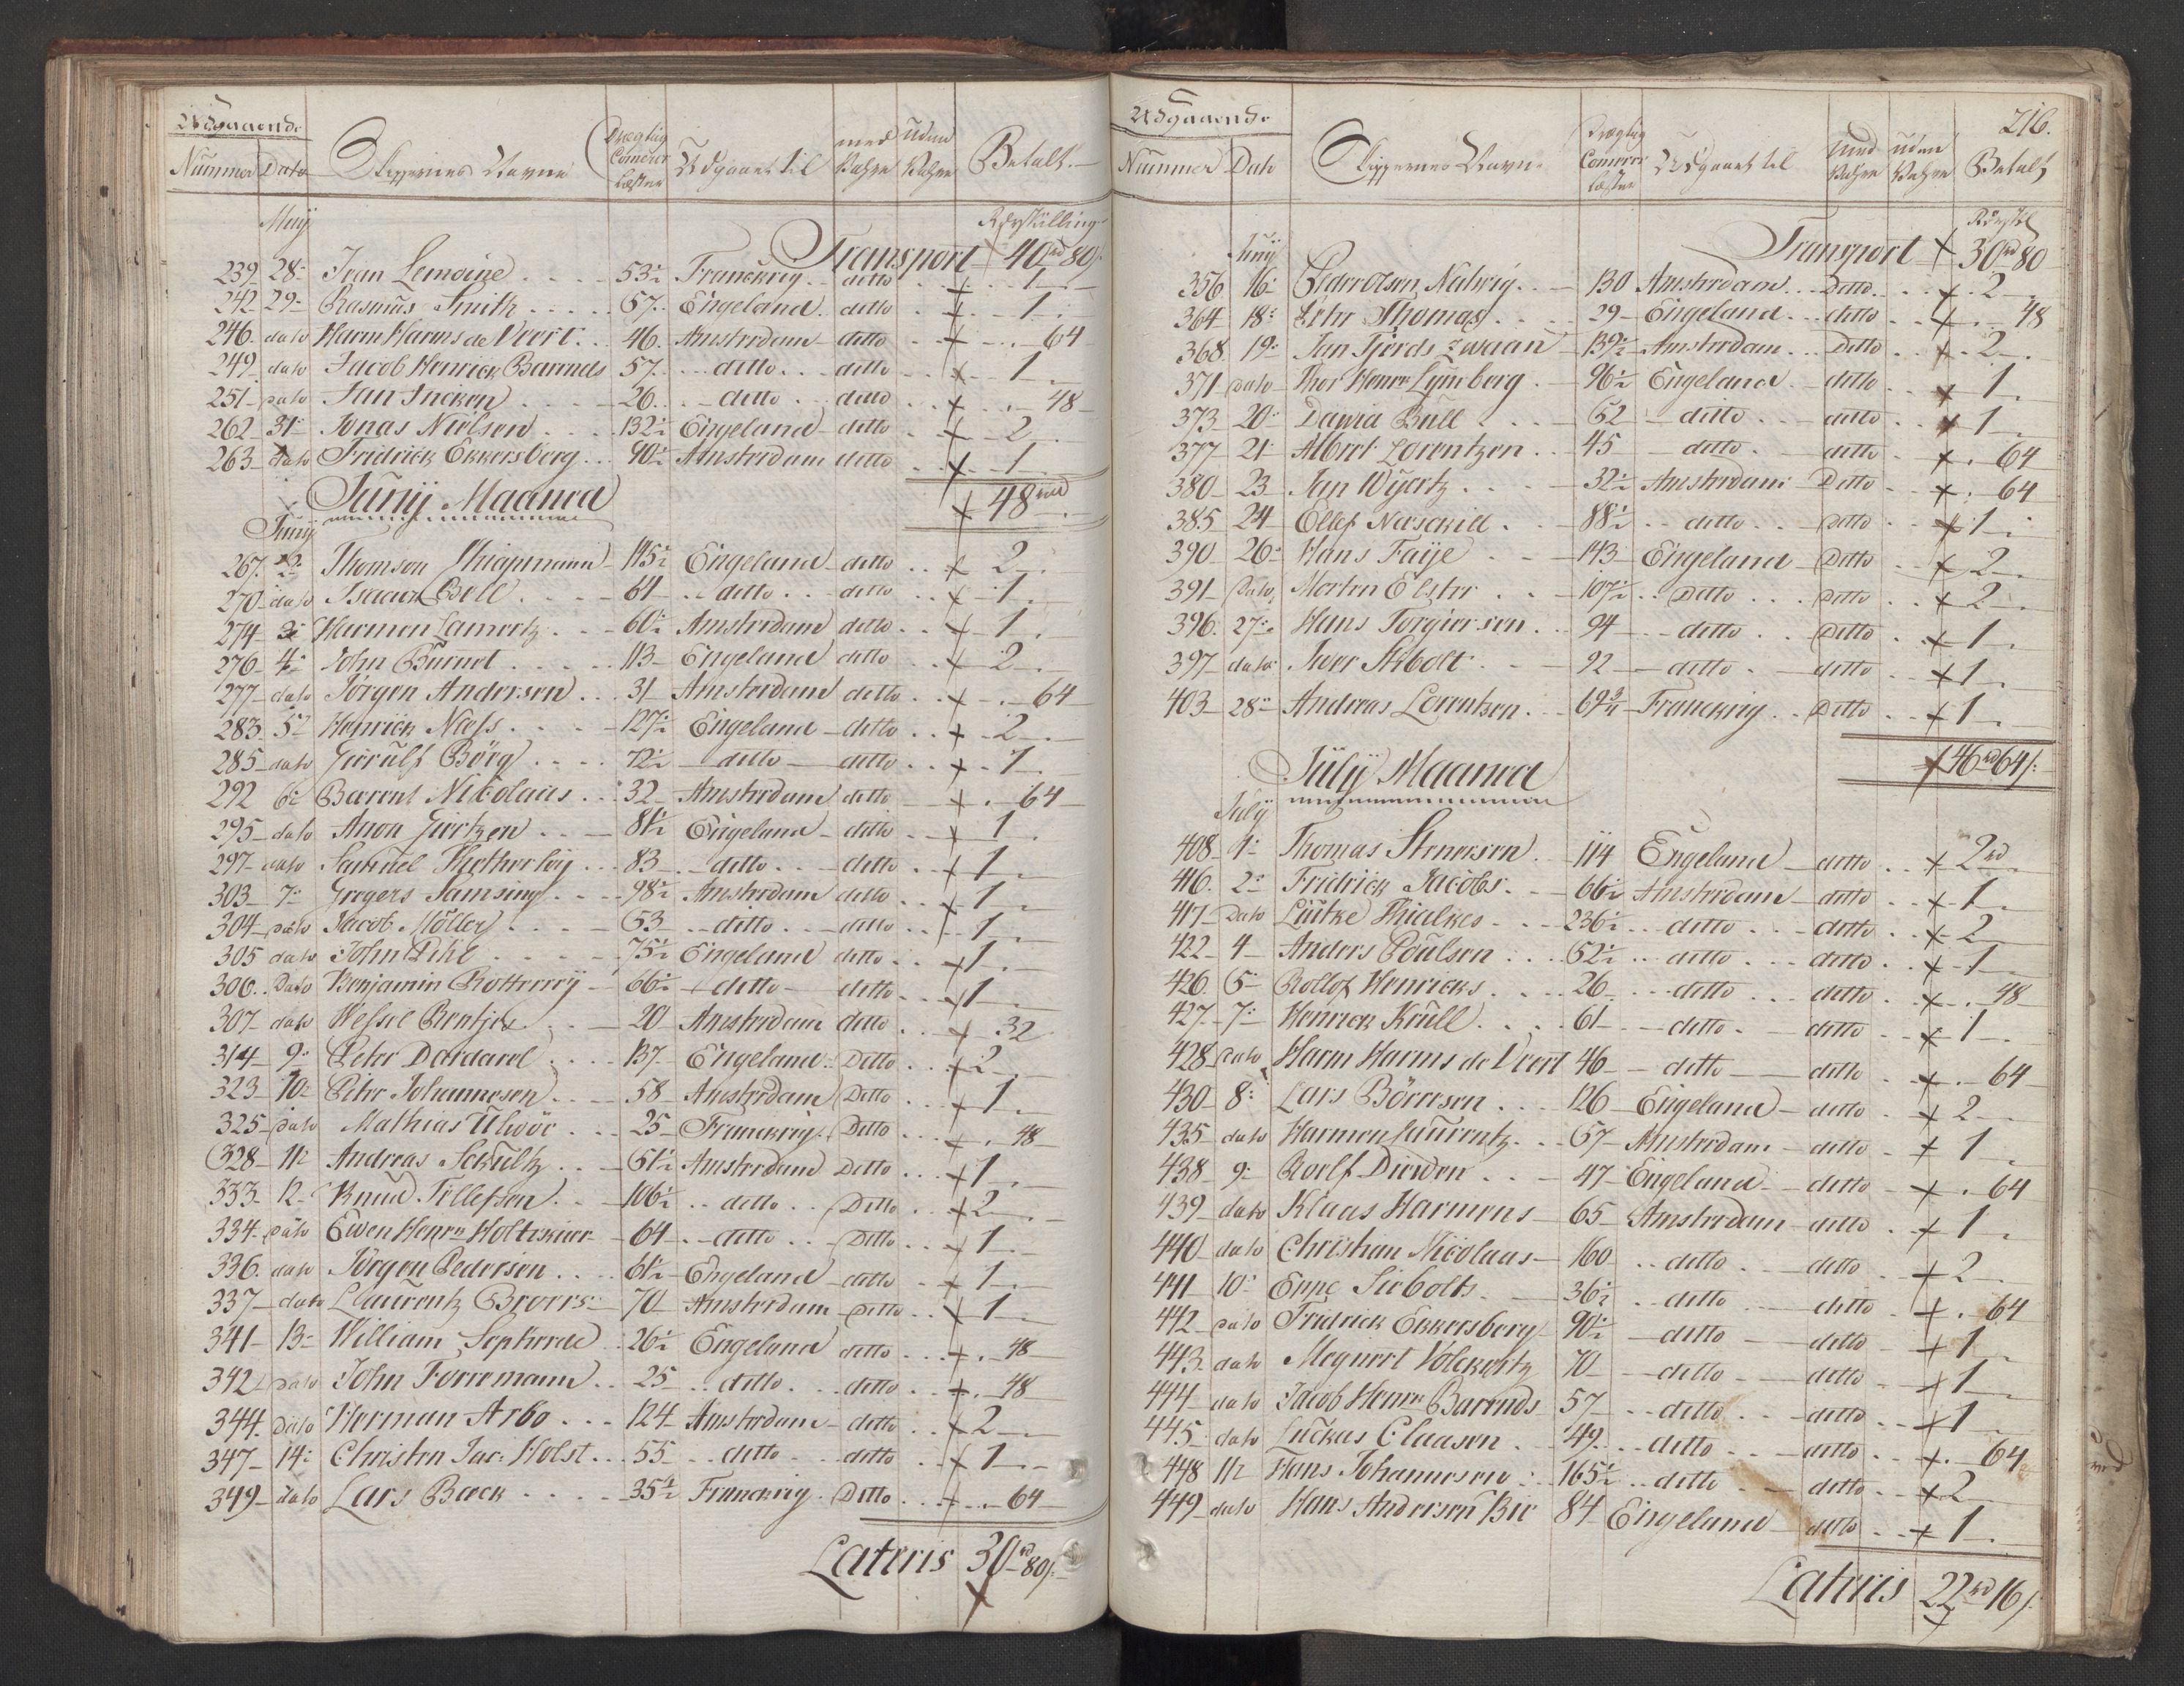 Udgaaende
Nummer Dato Skippernes Navne Drægtig Comerce Læster Udgaaet til med Vahre uden Vahre Betalt
Maij Rdr Skilling
Transport 40 rd 80 s.
239 28 Jean Lemoine 53½ Franckrig ditto 1
242 29 Rasmus Smith 57 Engeland ditto 1
246 dato Harm Harms de Veert 46 Amsterdam ditto 64
249 dato Jacob Henrick Barends 57 ditto ditto 1
251 dato Jan Inicken 26 ditto ditto 48
262 31 Jonas Nielsen 132½ Engeland ditto 2
263 dato Fridrick Ekkersberg 90½ Amsterdam ditto 1
Junij Maaned 48 rd
Junij
267 2 Thomson 145½ Engeland ditto 2
270 dato Isaack Bell 61 ditto ditto 1
274 3 Harmen Lamertz 60½ Amsterdam ditto 1
276 4 John Burnet 113 Engeland ditto 2
277 dato Jørgen Andersen 31 Amsterdam ditto 64
283 5 Henrick Næss 127½ Engeland ditto 2
285 dato Gierulf Börg 72½ ditto ditto 1
292 6 Barent Nicolaus 32 Amsterdam ditto 64
295 dato Anon Giertzen 81½ Engeland ditto 1
297 dato Samuel 83 ditto ditto 1
303 7 Gregers Samsing 98½ Amsterdam ditto 1
304 dato Jacob Möller 53 ditto ditto 1
305 dato John Pihl 75½ Engeland ditto 1
306 Dato Benjamin Rotterrey 66½ ditto ditto 1
307 dato Wessel Bentjes 20 Amsterdam ditto 32
314 9 Peter Dardarel 137 Engeland Ditto 2
323 10 Peter Johannesen 58 Amsterdam Ditto 1
325 dato Mathias Ulwöe 25 Franckrig Ditto 48
328 11 Andreas Schultz 51½ Amsterdam Ditto 1
333 12 Knud Tellefsen 106½ ditto Ditto 2
334 dato Ewen Henr. Holteskier 64 ditto Ditto 1
336 dato Jörgen Pedersen 61½ Engeland ditto 1
337 dato Laurentz Broers 70 Amsterdam ditto 1
341 13 William Sepherde 26½ Engeland ditto 48
342 dato John Forremann 25 ditto ditto 48
344 Dato Herman Arbo 124 Amsterdam ditto 2
347 14 Christen Jac: Holst 55 ditto ditto 1
349 dato Lars Bæck 35½ Franckrig Ditto 64
Lateris 30 rd 80 s.
216.
Udgaaende
Nummer Dato Skippernes Navne Drægtig Comerce Læster Udgaaet til Med Vahre uden Vahre Betalt
Junij Rdr skl
Transport 30 rd 80
356 16 Clar Olsen Nalwig 130 Amsterdam Ditto 2
364 18 Peter Thomas 29 Engeland ditto 48
368 19 Jan Tjerds Zwaan 139½ Amsterdam Ditto 2
371 dato Thor Henr. Lymberg 96½ Engeland ditto 1
373 20 Dawid Bull 52 ditto ditto 1
377 21 Albert Lorentzen 45 ditto ditto 64
380 23 Jan Wyertz 32½ Amsterdam Ditto 64
385 24 Ellef Næsckill 88½ ditto ditto 1
390 26 Hans Faye 143 Engeland Ditto 2
391 Dato Morten Elster 107½ Ditto Ditto 2
396 27 Hans Torgiersen 94 ditto Ditto 1
397 dato Iwer Sibolt 92 ditto ditto 1
403 28 Andreas Lorentzen 69¾ Franckrig Ditto 1
46 rd 64 s.
Julij Maaned
Julij
408 1 Thomas Stenersen 114 Engeland ditto 2 rd
416 2 Fridrick Jacobs 66½ Amsterdam ditto 1
417 Dato Lütke Thialkes 236½ ditto ditto 2
422 4 Anders Poulsen 52½ ditto ditto 1
426 5 Rollof Henricks 26 ditto ditto 48
427 7 Henrick Krull 61 ditto ditto 1
428 dato Harm Harms de Veert 46 ditto ditto 64
430 8 Lars Börresen 126 Engeland ditto 2
435 dato Harmen Laurentz 57 Amsterdam ditto 1
438 9 Roelf Dieden 47 Engeland ditto 64
439 dato Klaas Harmens 65 Amsterdam ditto 1
440 dato Christian Nicolaus 160 ditto ditto 2
441 10 Enne Siebolts 36½ ditto ditto 64
442 dato Fridrick Ekkersberg 90½ ditto ditto 1
443 dato Meynert Volckertz 70 ditto ditto 1
444 dato Jacob Henr. Barends 57 ditto ditto 1
445 dato Luckas Claasen 49 ditto ditto 64
448 11 Hans Johannesen 165½ ditto ditto 2
449 dato Hans Andersen Bie 84 Engeland ditto 1
Lateris 22 rd 16 s.